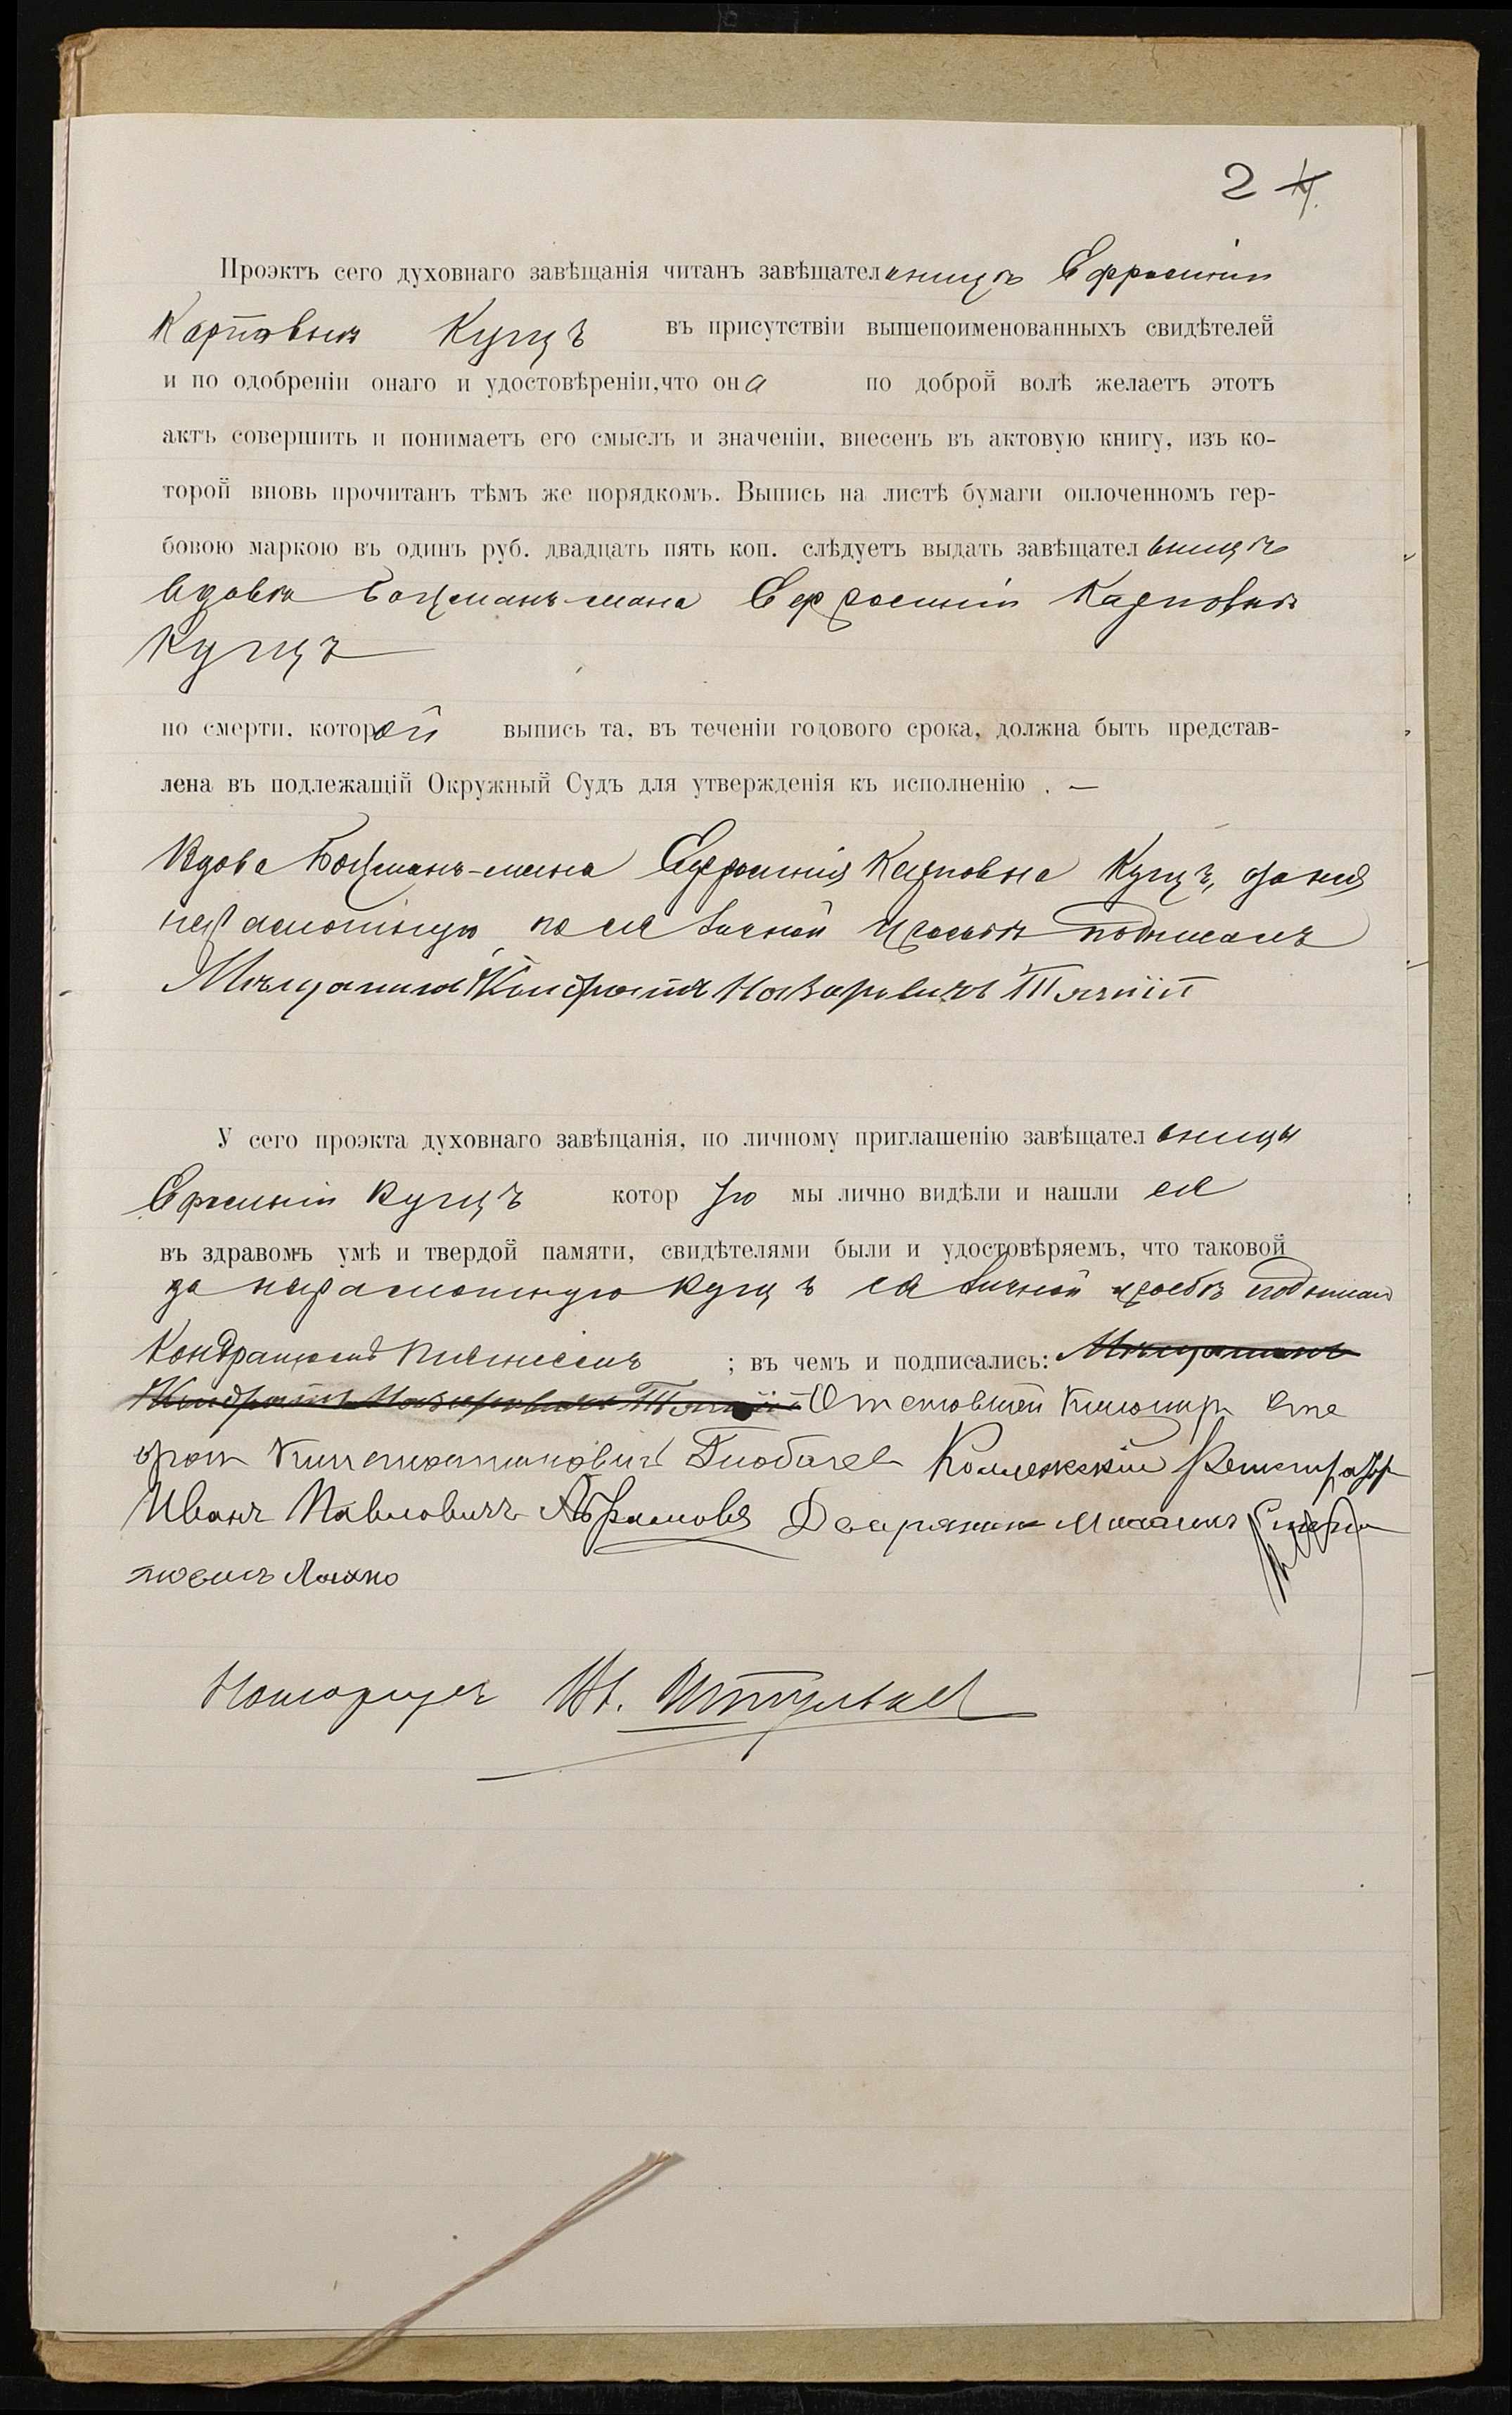 2
Проэктъ сего духовнаго завѣщанія читанъ завѣщательницѣ Ефросиніи
Карповнѣ Купцъ въ присутствіи вышепоименованныхъ свидѣтелей
и по одобреніи онаго и удостовѣреніи, что она по доброй волѣ желаетъ этотъ
актъ совершить и понимаетъ его смыслъ и значеніи, внесенъ въ актовую книгу, изъ ко-
торой вновь прочитанъ тѣмъ же порядкомъ. Выпись на листѣ бумаги оплоченномъ гер-
бовою маркою въ одинъ руб. двадцать пять коп. слѣдуетъ выдать завѣщательницѣ
вдовѣ Боцманъ-мата Ефросиніи Карповнѣ
Купцъ
по смерти, которой выпись та, въ теченіи годового срока, должна быть представ-
лена въ подлежащій Окружный Судъ для утвержденія къ исполненію . —
Вдова Боцманъ-мата Ефросинія Карповна Купцъ, а за нея
неграмотную по ея личной просьбѣ подписалъ
Мѣщанинъ Кондратъ Назаровичъ
У сего проэкта духовнаго завѣщанія, по личному приглашенію завѣщательницы
Ефросиніи Купцъ которую мы лично видѣли и нашли ея
въ здравомъ умѣ и твердой памяти, свидѣтелями были и удостовѣряемъ, что таковой
за неграмотную Купцъ ея личной просьбѣ подписанъ
; въ чемъ и подписались: Мѣщанинъ
Кондратъ Назаровичъ Отставной
Константиновичъ Коллежскій Регистраторъ
Иванъ Павловичъ Абрамовъ Дворянинъ Михаилъ
Нотаріусъ